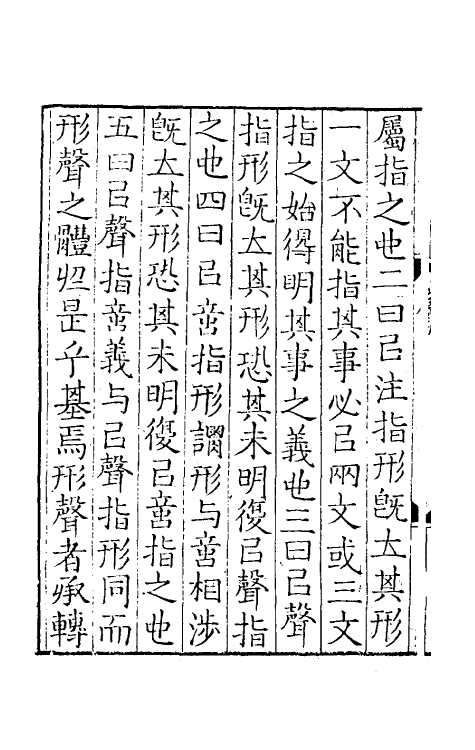 屬指之也二曰㠯注指形旣厷其形
一文不能指其事必㠯兩文或三文
指之始得明其事之義也三曰㠯聲
指形旣厷其形恐其未明復㠯聲指
之也四曰㠯意指形謂形与意相涉
旣厷其形恐其未明復㠯意指之也
五曰㠯聲指意義与㠯聲指形同而
形聲之體㫷是乎基焉形聲者承轉